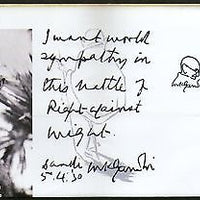 I want world
sympathy in
this battle of
Right against
might.
Dandi MKGandhi
5.4.30
MKGandhi